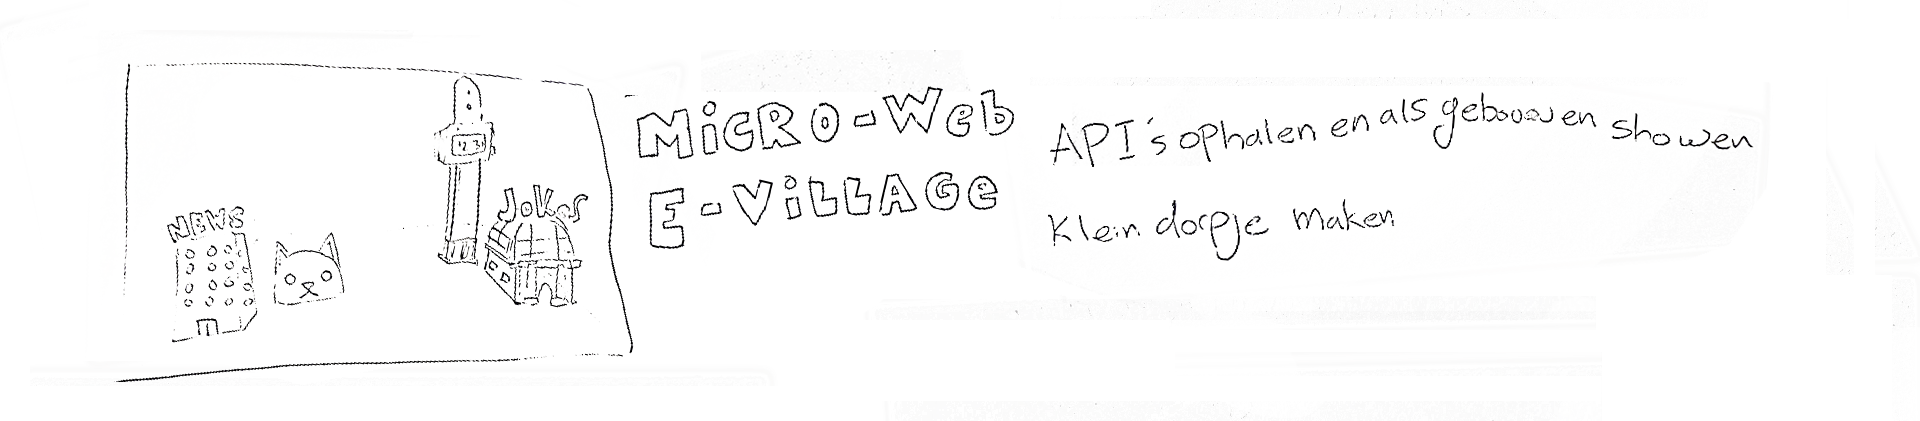 NEWS
12 31
JoKeS
MiCRO-Web
E-ViLLAGe
API's ophalen en als gebouwen showen
Klein dorpje maken